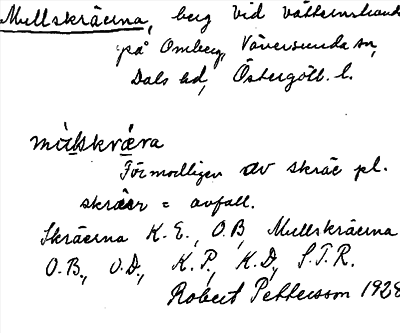 Mullskräerna, berg vid vätternstrand
på Omberg, Väversunda sn,
Dals hd, Östergötl. l.
mùlskræra
Förmodligen av skräe pl.
skräer = avfall.
Skräerna K. E., O. B., Mullskräerna
O. B., O. D., K. P., K. D., S. T. R.
Robert Pettersson 1928